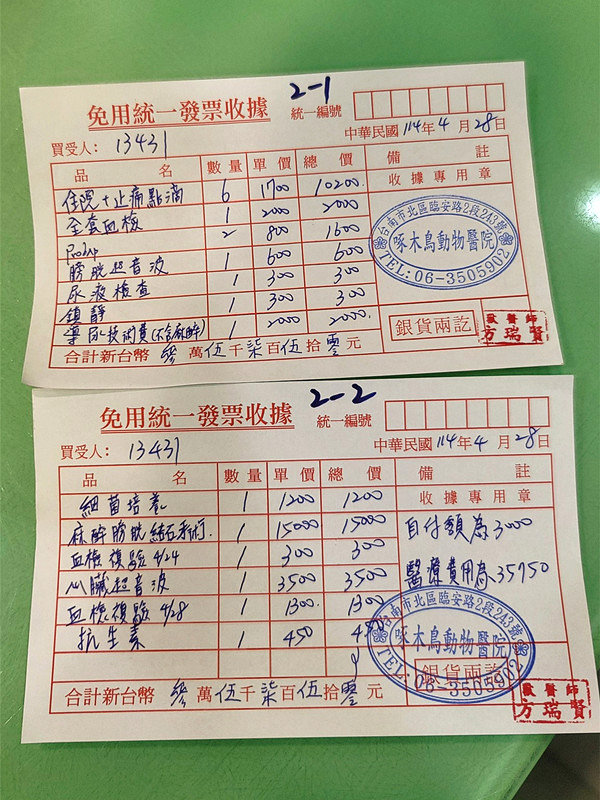 2-1
免用統一發票收據
統一編號
買受人：13431
中華民國114年4月28日
品 名 數量 單價 總價 備註
收據專用章
住院+止痛點滴 6 1700 10200
全套血檢 1 2000 2000
2 800 1600
膀胱超音波 1 600 600
尿液檢查 1 300 300
鎮靜 1 300 300
導尿技術費(不含麻醉) 1 2000 2000
台南市北區臨安路2段243號
啄木鳥動物醫院
TEL:06-3505902
銀貨兩訖
獸醫師
方瑞賢
合計新台幣 參萬伍千柒百伍拾零元
2-2
免用統一發票收據
統一編號
買受人：13431
中華民國114年4月28日
品 名 數量 單價 總價 備註
收據專用章
細菌培養 1 1200 1200
麻醉膀胱結石手術 1 15000 15000
血檢複驗 4/24 1 300 300
心臟超音波 1 3500 3500
血檢複驗 4/28 1 1300 1300
抗生素 1 450 450
自付額為3000
醫療費用為35750
台南市北區臨安路2段243號
啄木鳥動物醫院
TEL:06-3505902
銀貨兩訖
獸醫師
方瑞賢
合計新台幣 參萬伍千柒百伍拾零元